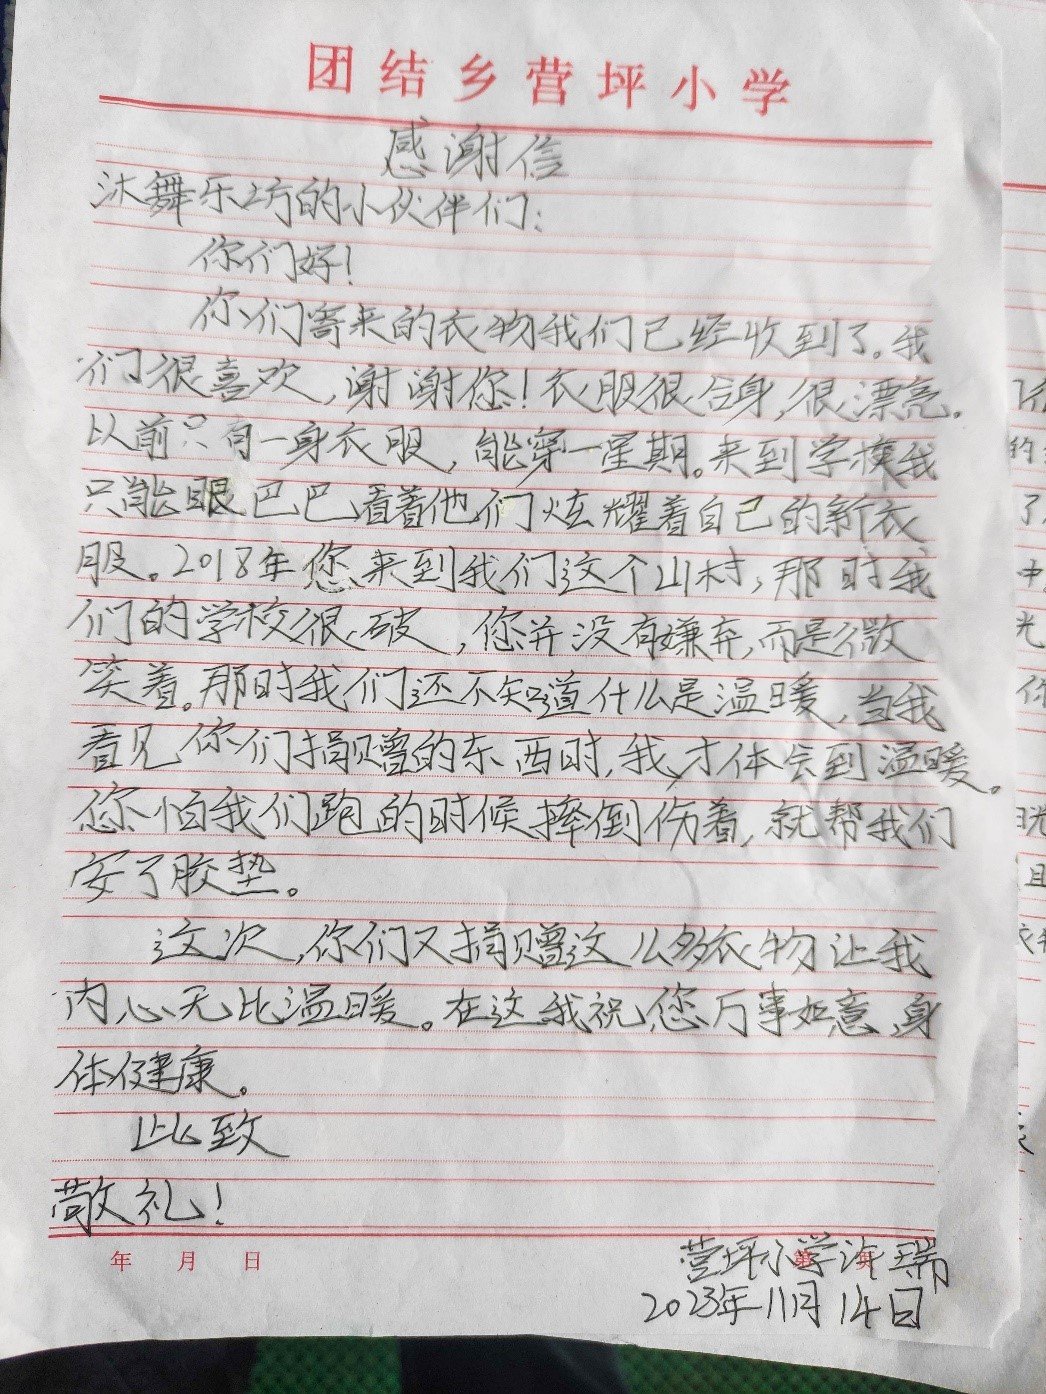 团结乡营坪小学
感谢信
沐舞乐坊的小伙伴们:
你们好!
你们寄来的衣物我们已经收到了。我
们很喜欢,谢谢您!衣服很合身,很漂亮。
以前只有一身衣服,能穿一星期。来到学校我
只能眼巴巴看着他们炫耀着自己的新衣
服。2018年您来到我们这个山村,那时我
们的学校很破,您并没有嫌弃,而是微
笑着。那时我们还不知道什么是温暖,当我
看见你们捐赠的东西时,我才体会到温暖。
您怕我们跑的时候摔倒伤着,就帮我们
安了胶垫。
这次,你们又捐赠这么多衣物让我
内心无比温暖。在这我祝您万事如意,身
体健康。
此致
敬礼!
年 月 日
营坪小学许瑞
2023年11月14日